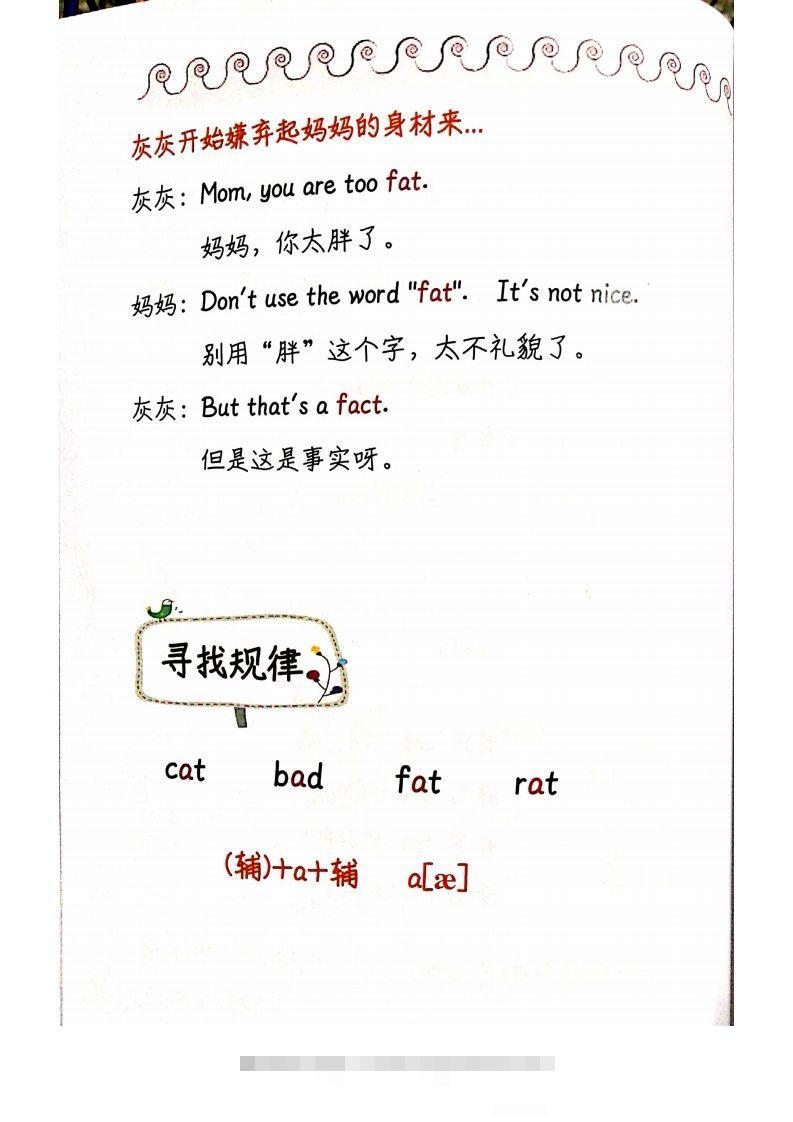 灰灰开始嫌弃起妈妈的身材来...
灰灰：Mom, you are too fat.
妈妈，你太胖了。
妈妈：Don't use the word "fat". It's not nice.
别用“胖”这个字，太不礼貌了。
灰灰：But that's a fact.
但是这是事实呀。
寻找规律
cat bad fat rat
(辅)+a+辅 a[æ]